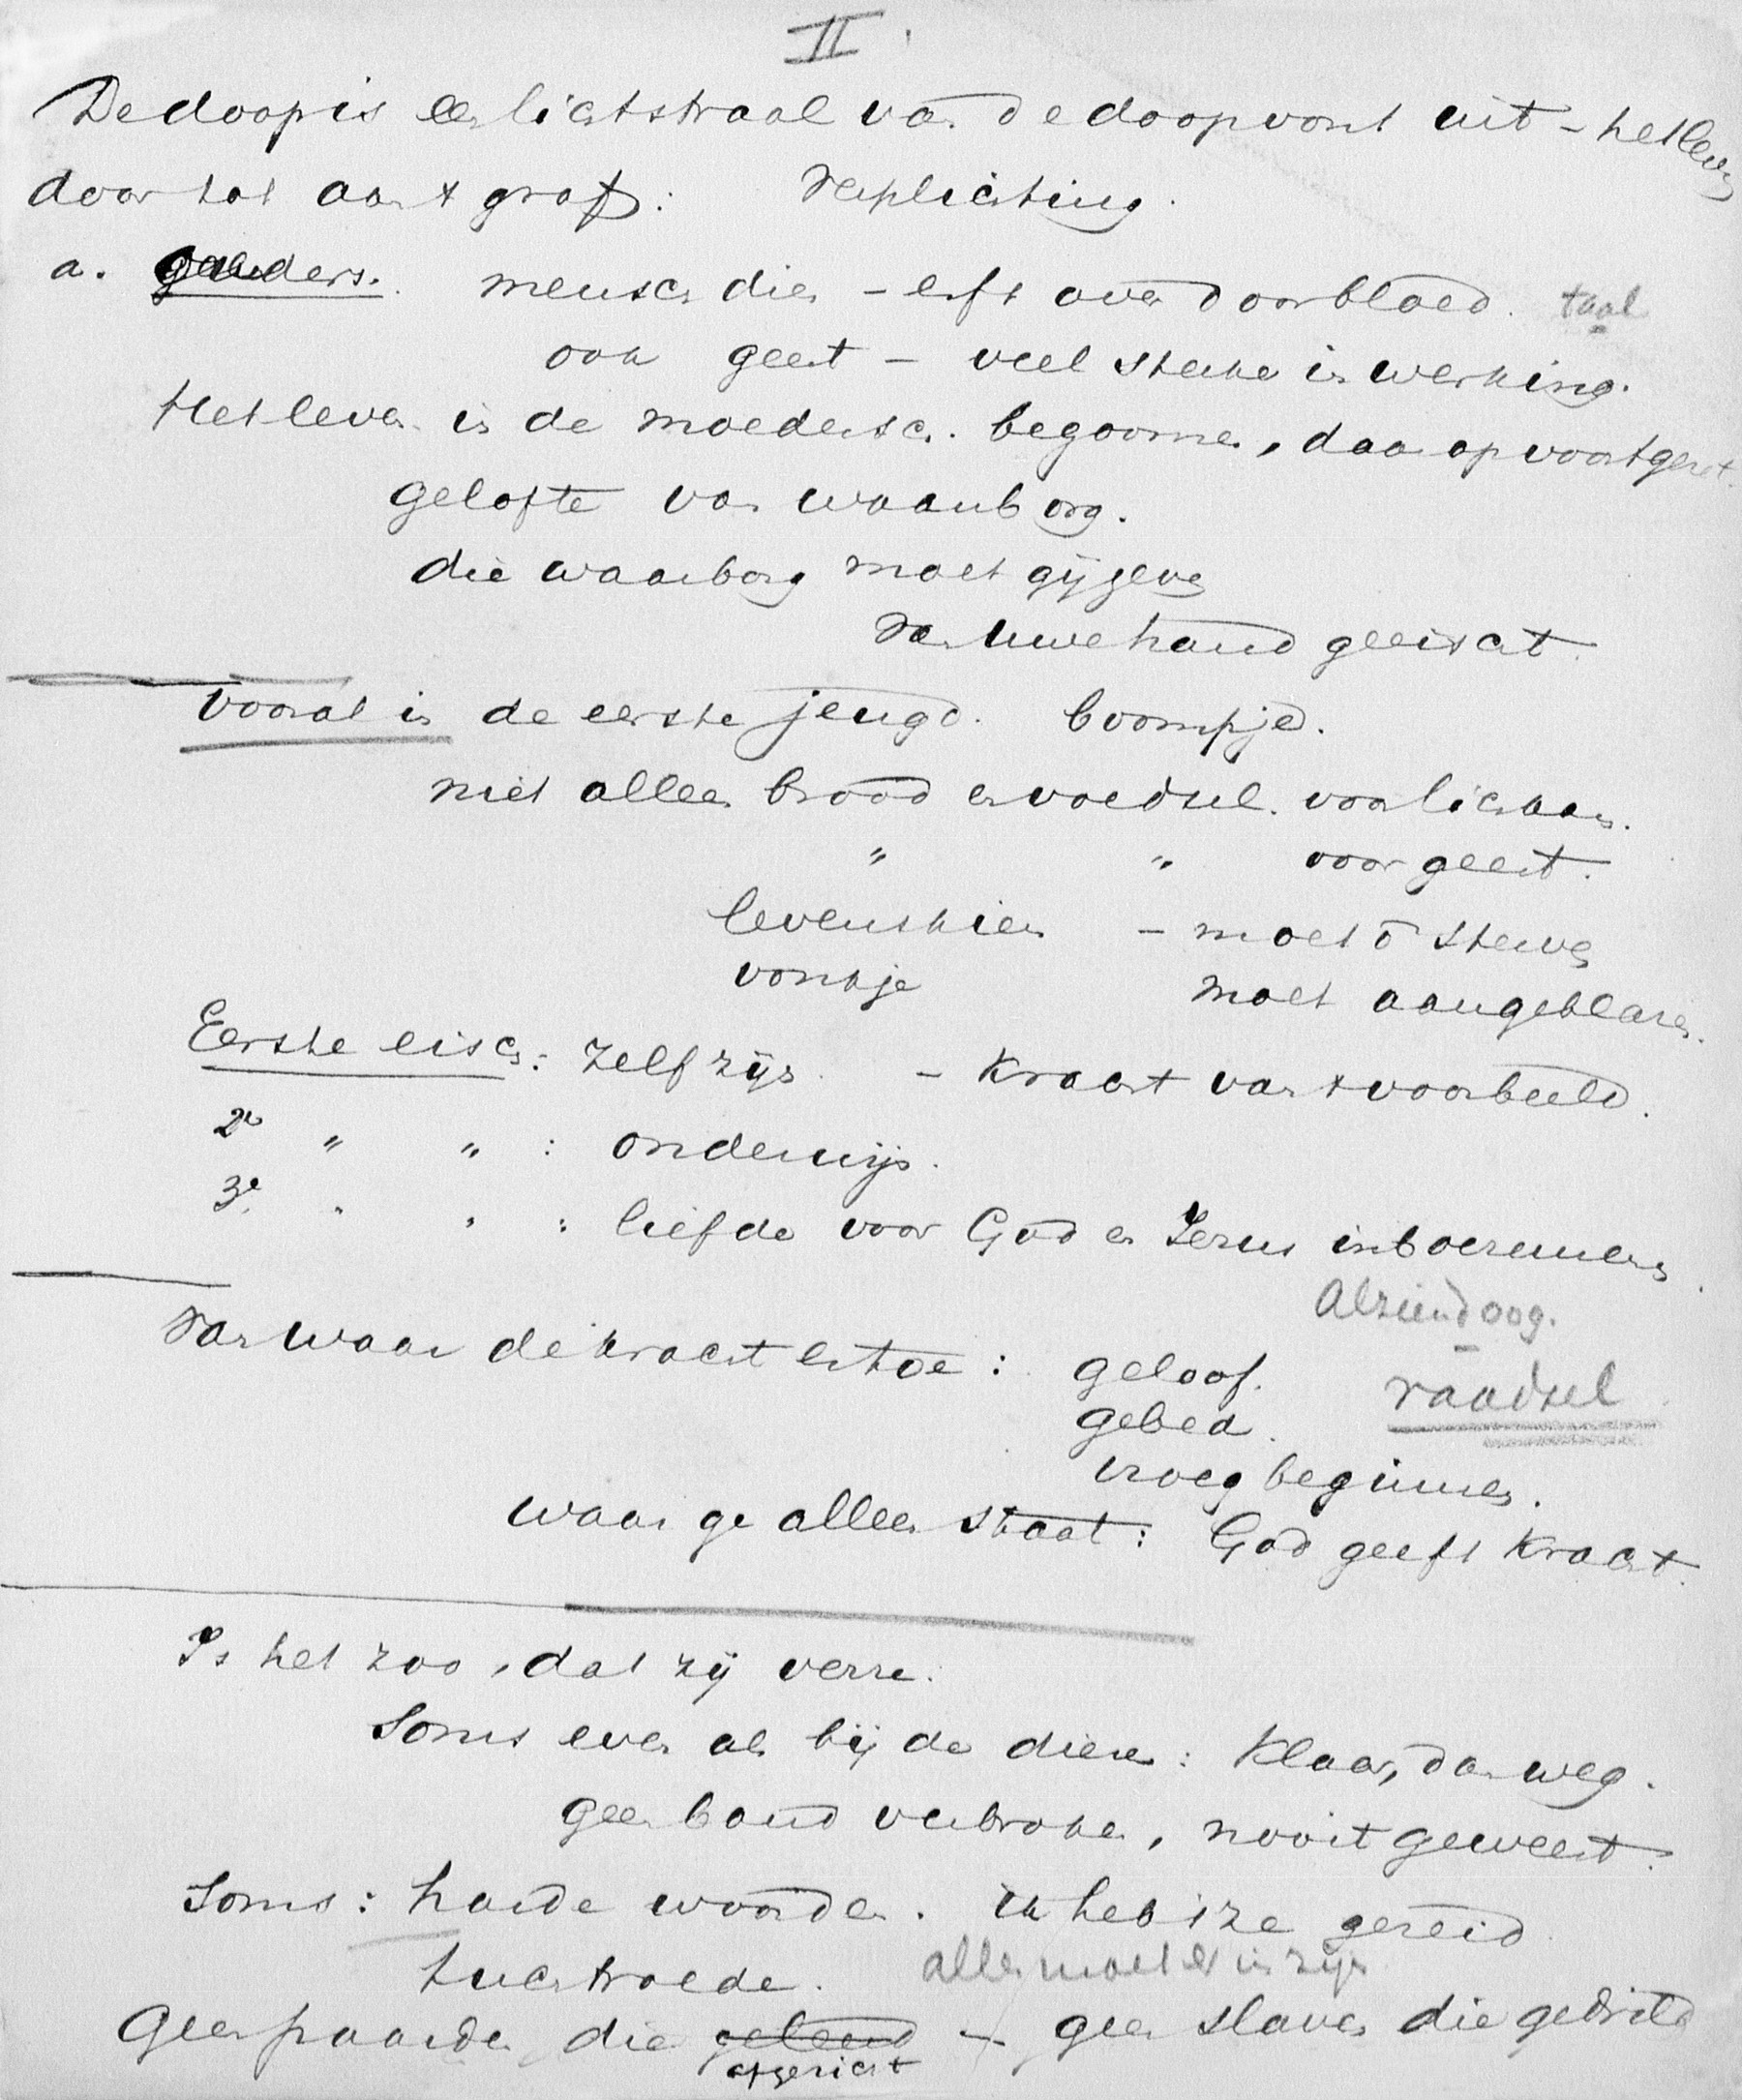 II.
De doop is een lichtstraal van de doopvont uit - het leven
door tot aan 't graf: Verplichting.
a. ouders. mensch dier - erft over door bloed. taal
ook geest - veel sterker in werking.
Het leven in de moedersch. begonnen, daarop voortgezet.
gelofte van waarborg.
die waarborg moet gij geven
Van uwe hand geeischt.
Vooral in de eerste jeugd. boompje.
niet alleen brood en voedsel. voor lichaam.
" " voor geest.
levenskiem - moet o sterven
vonkje moet aangeblazen.
Eerste eisch: Zelf zijn. - Kracht van 't voorbeeld.
2e " " : onderwijs.
3e " " : liefde voor God en Jezus inboezemen.
Alziend oog.
Van waar de kracht ertoe: geloof.
raadsel
gebed.
vroeg beginnen.
waar ge alleen staat: God geeft Kracht.
Is het zoo, dat zij verre.
Soms even als bij de dieren: Klaar, dan weg.
geen band verbroken, nooit geweest.
Soms: harde woorden. ik heb 't ze gezeid
tuchtroede. alles moet er in zijn
Geen paarden die geleend afgericht - geen slaven die gedrild